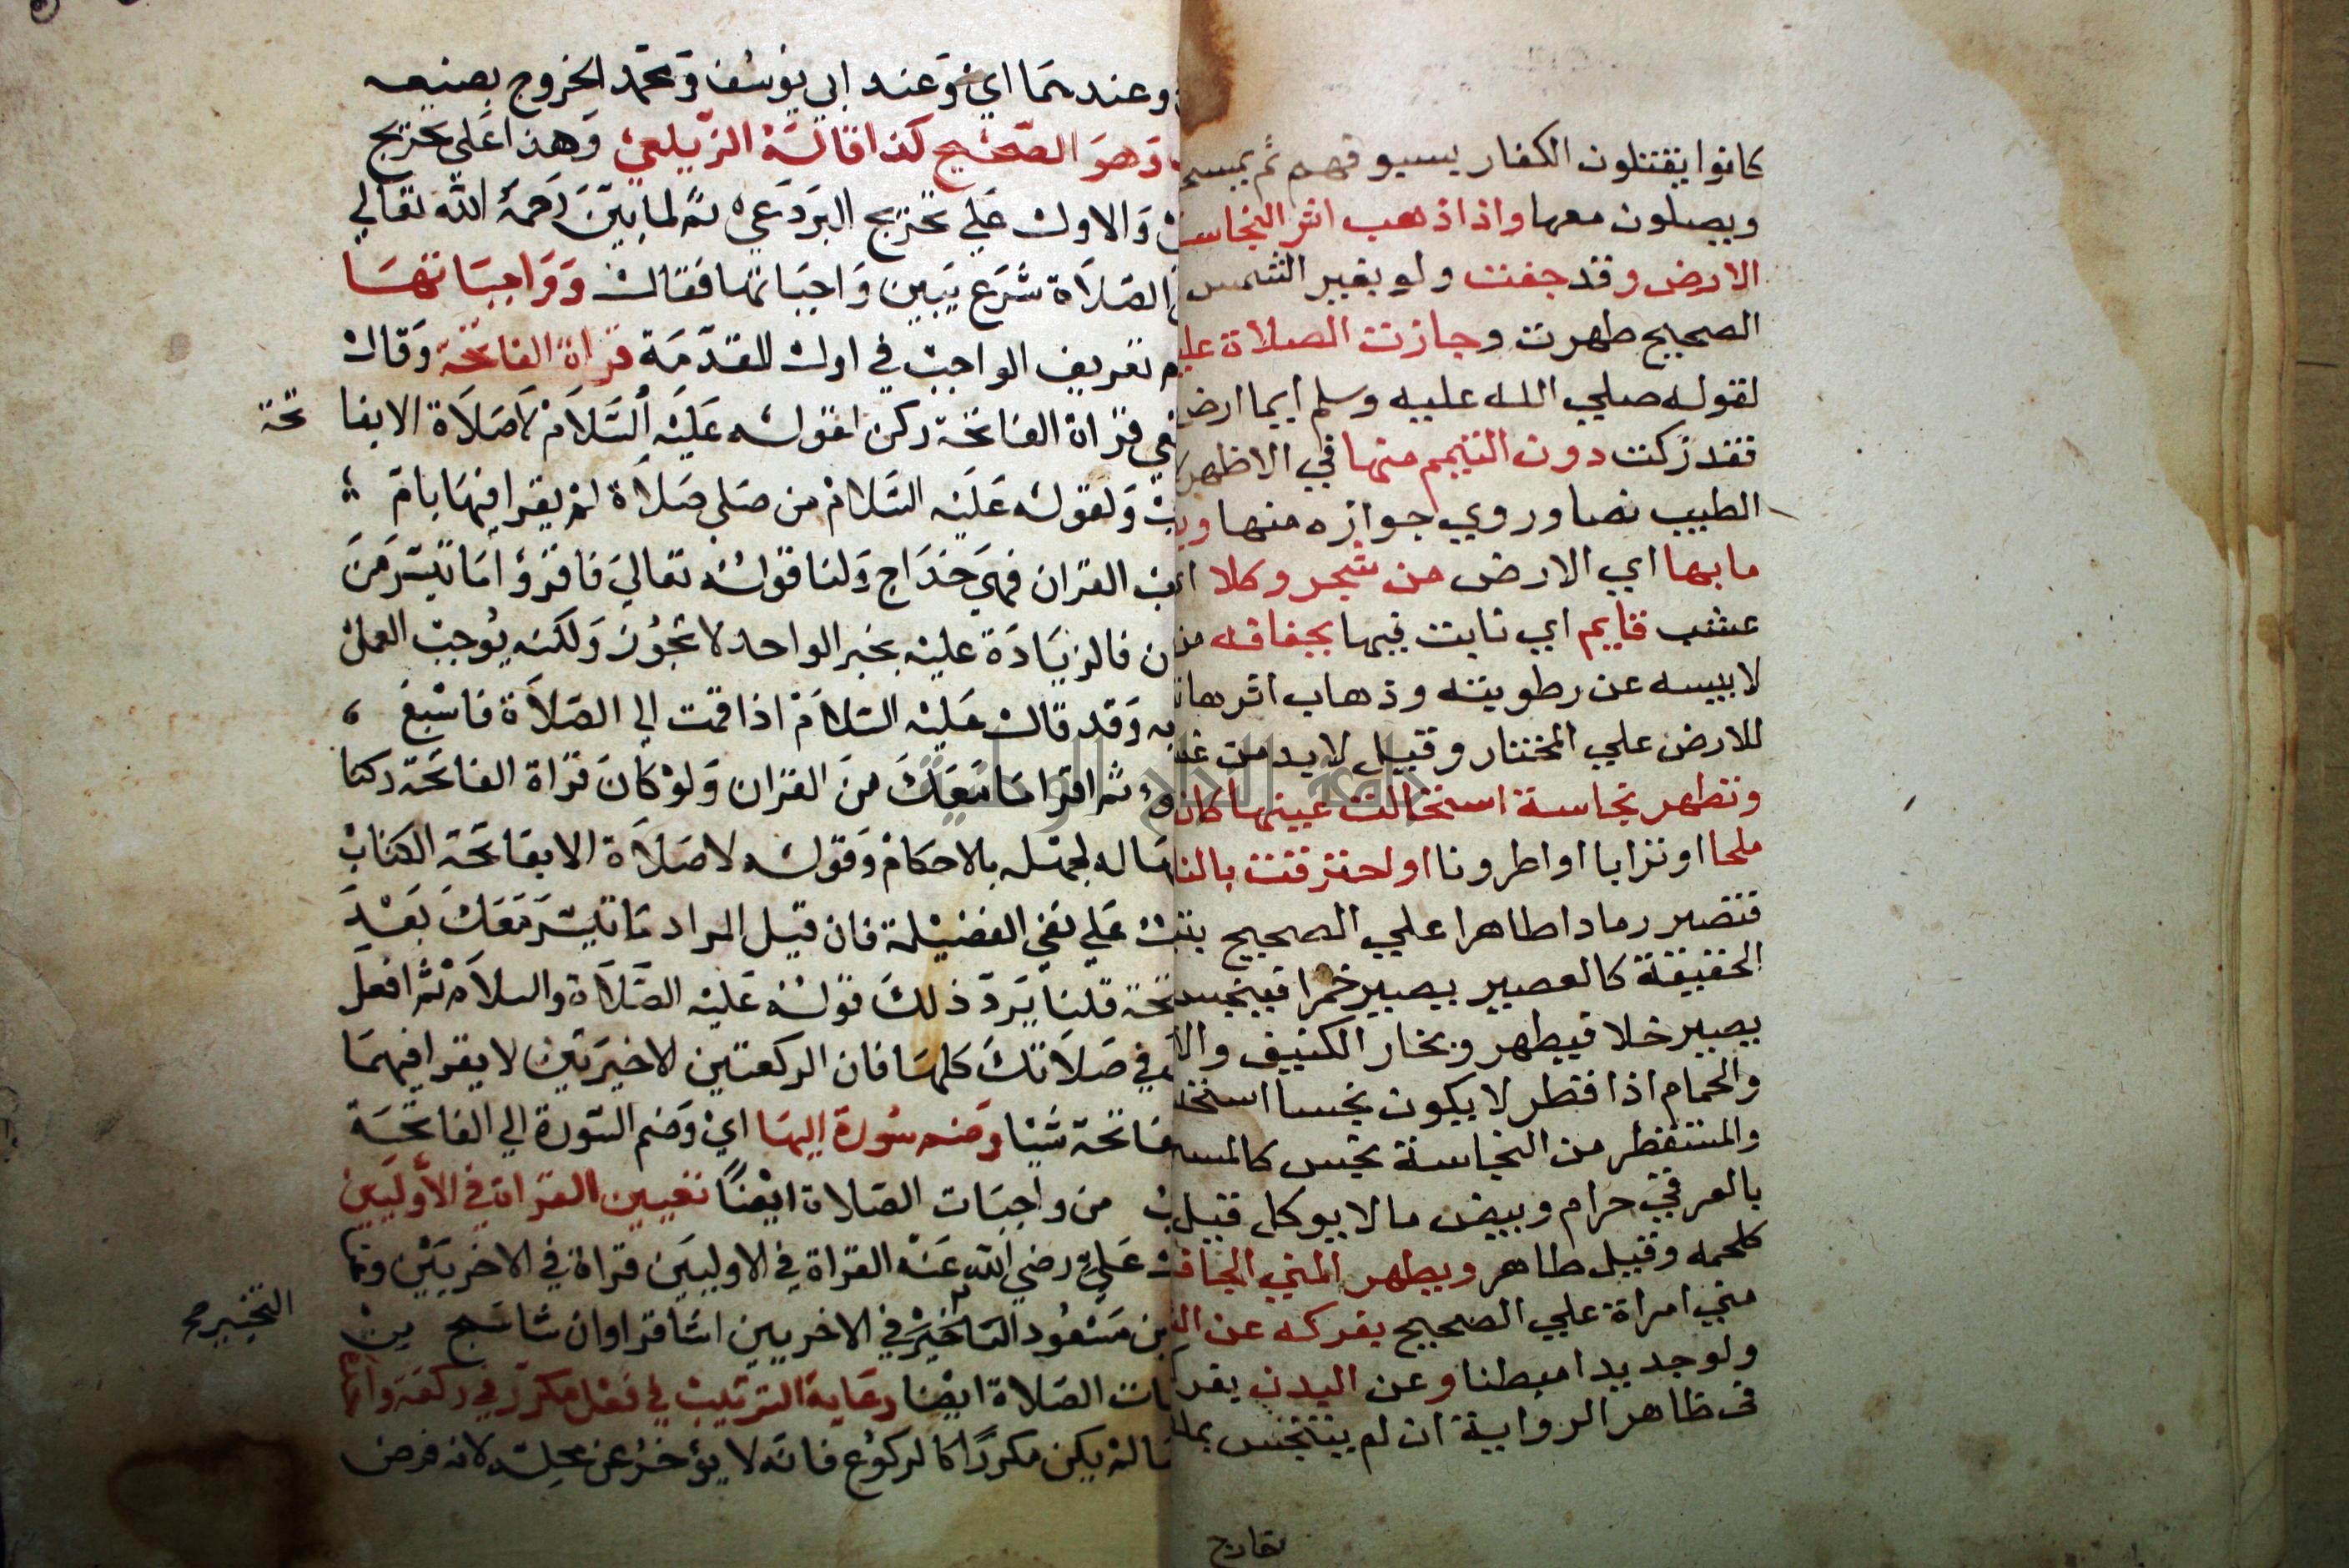 كانوا يقتتلون الكفار بسيوفهم ثم يمسحو
ويصلون معها واذا ذهب اثر النجاست
الارض وقد جفت ولو بغير الشمس
الصحيح طهرت وجازت الصلاة علي
لقوله صلي الله عليه وسلم ايما ارض
فقد زكت دون التيمم منها في الاظهر
الطيب نصا وروي جوازه منها
ما بها اي الارض من شجر وكلا
عشب قايم اي نابت فيها بجفافه من
لا يبسه عن رطوبته وذهاب اثرها
للارض علي المختار وقيل لا بد من
وتطهر نجاسة استحالت عينها كان
ملحا او ترابا او اطرونا او احترقت بالنا
فتصير رمادا طاهرا علي الصحيح
الحقيقة كالعصير يصير خمرا فينجس
يصير خلا فيطهر وبخار الكنيف
والحمام اذا قطر لا يكون نجسا
والمستقطر من النجاسة نجس
بالعرقي حرام وبيض ما لا يوكل قيل
كلحمه وقيل طاهر ويطهر المني الجاف
مني امراة علي الصحيح بفركه عن
ولو جديدا مبطنا وعن البدن بفر
في ظاهر الرواية ان لم يتنجس
تخارج
وعندهما اي وعند ابي يوسف ومحمد الخروج بصنعه
وهو الصحيح كذا قاله الزيلعي وهذا علي تخريج
والاول علي تخريج البردعي ثم لما بين رحمه الله تعالي
الصلاة شرع يبين واجباتها فقال وواجباتها
تعريف الواجب في اول المقدمة قراة الفاتحة وقال
قراة الفاتحة ركن لقوله عليه السلام لا صلاة الا بفا
تحة
ولقوله عليه السلام من صلي صلاة لم يقرا فيها بام
القران فهي خداج ولنا قوله تعالي فاقرؤا ما تيسر من
فالزيادة عليه بخبر الواحد لا تجوز ولكنه يوجب العمل
به وقد قال عليه السلام اذا قمت الي الصلاة فاسبغ
ثم اقرا ما معك من القران ولو كان قراة الفاتحة ركنا
بالاحكام وقوله لا صلاة الا بفاتحة الكتاب
علي نفي الفضيلة فان قيل المراد ما تيسر معك بعد
قلنا يرد ذلك قوله عليه الصلاة والسلام ثم افعل
في صلاتك كلها فان الركعتين الاخيرتين لا يقرا فيهما
فاتحة شيئا وضم سورة اليها اي وضم السورة الي الفاتحة
من واجبات الصلاة ايضا تعيين القراة في الاوليين
علي رضي الله عنه القراة في الاوليين قراة في الاخريين
بن مسعود التخيير في الاخريين ان شا قرا وان شا سبح
التخيير صح
الصلاة ايضا رعاية الترتيب في فعل مكرر في ركعة
لم يكن مكررا كالركوع فانه لا يؤخر عن محله لانه فرض